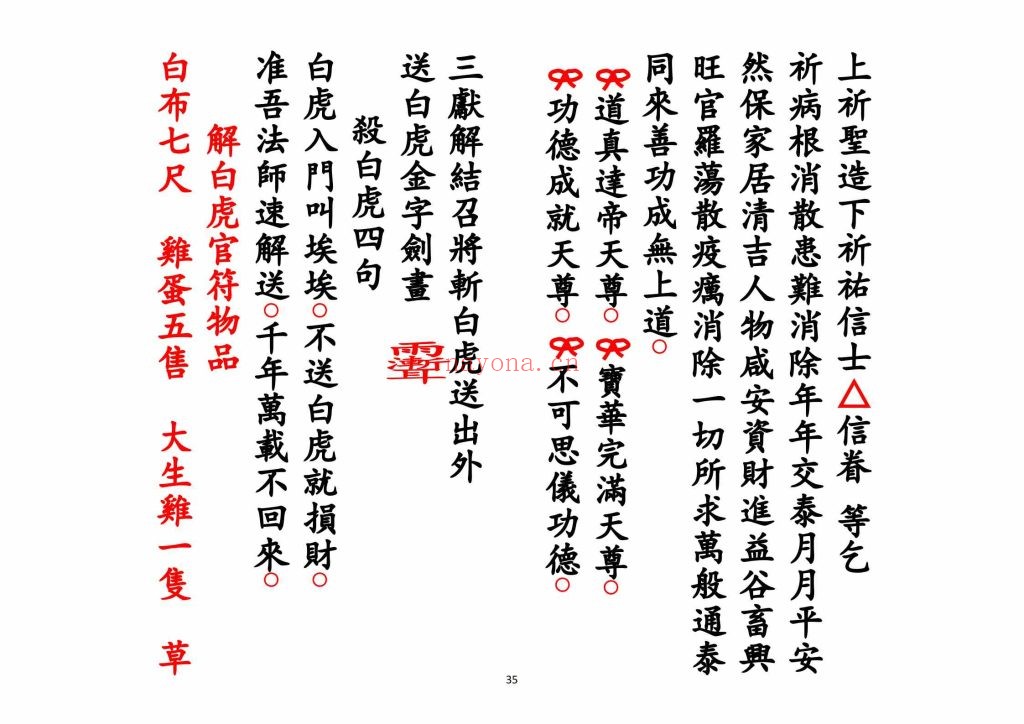 上祈聖造下祈祐信士△信眷 等乞
祈病根消散患難消除年年交泰月月平安
然保家居清吉人物咸安資財進益谷畜興
旺官羅蕩散疫癘消除一切所求萬般通泰
同來善功成無上道○
道真達帝天尊○ 寶華完滿天尊○
功德成就天尊○ 不可思儀功德○
三獻解結召將斬白虎送出外
送白虎金字劍畫
殺白虎四句
白虎入門叫埃埃○不送白虎就損財○
准吾法師速解送○千年萬載不回來○
解白虎官符物品
白布七尺 雞蛋五售 大生雞一隻 草
35